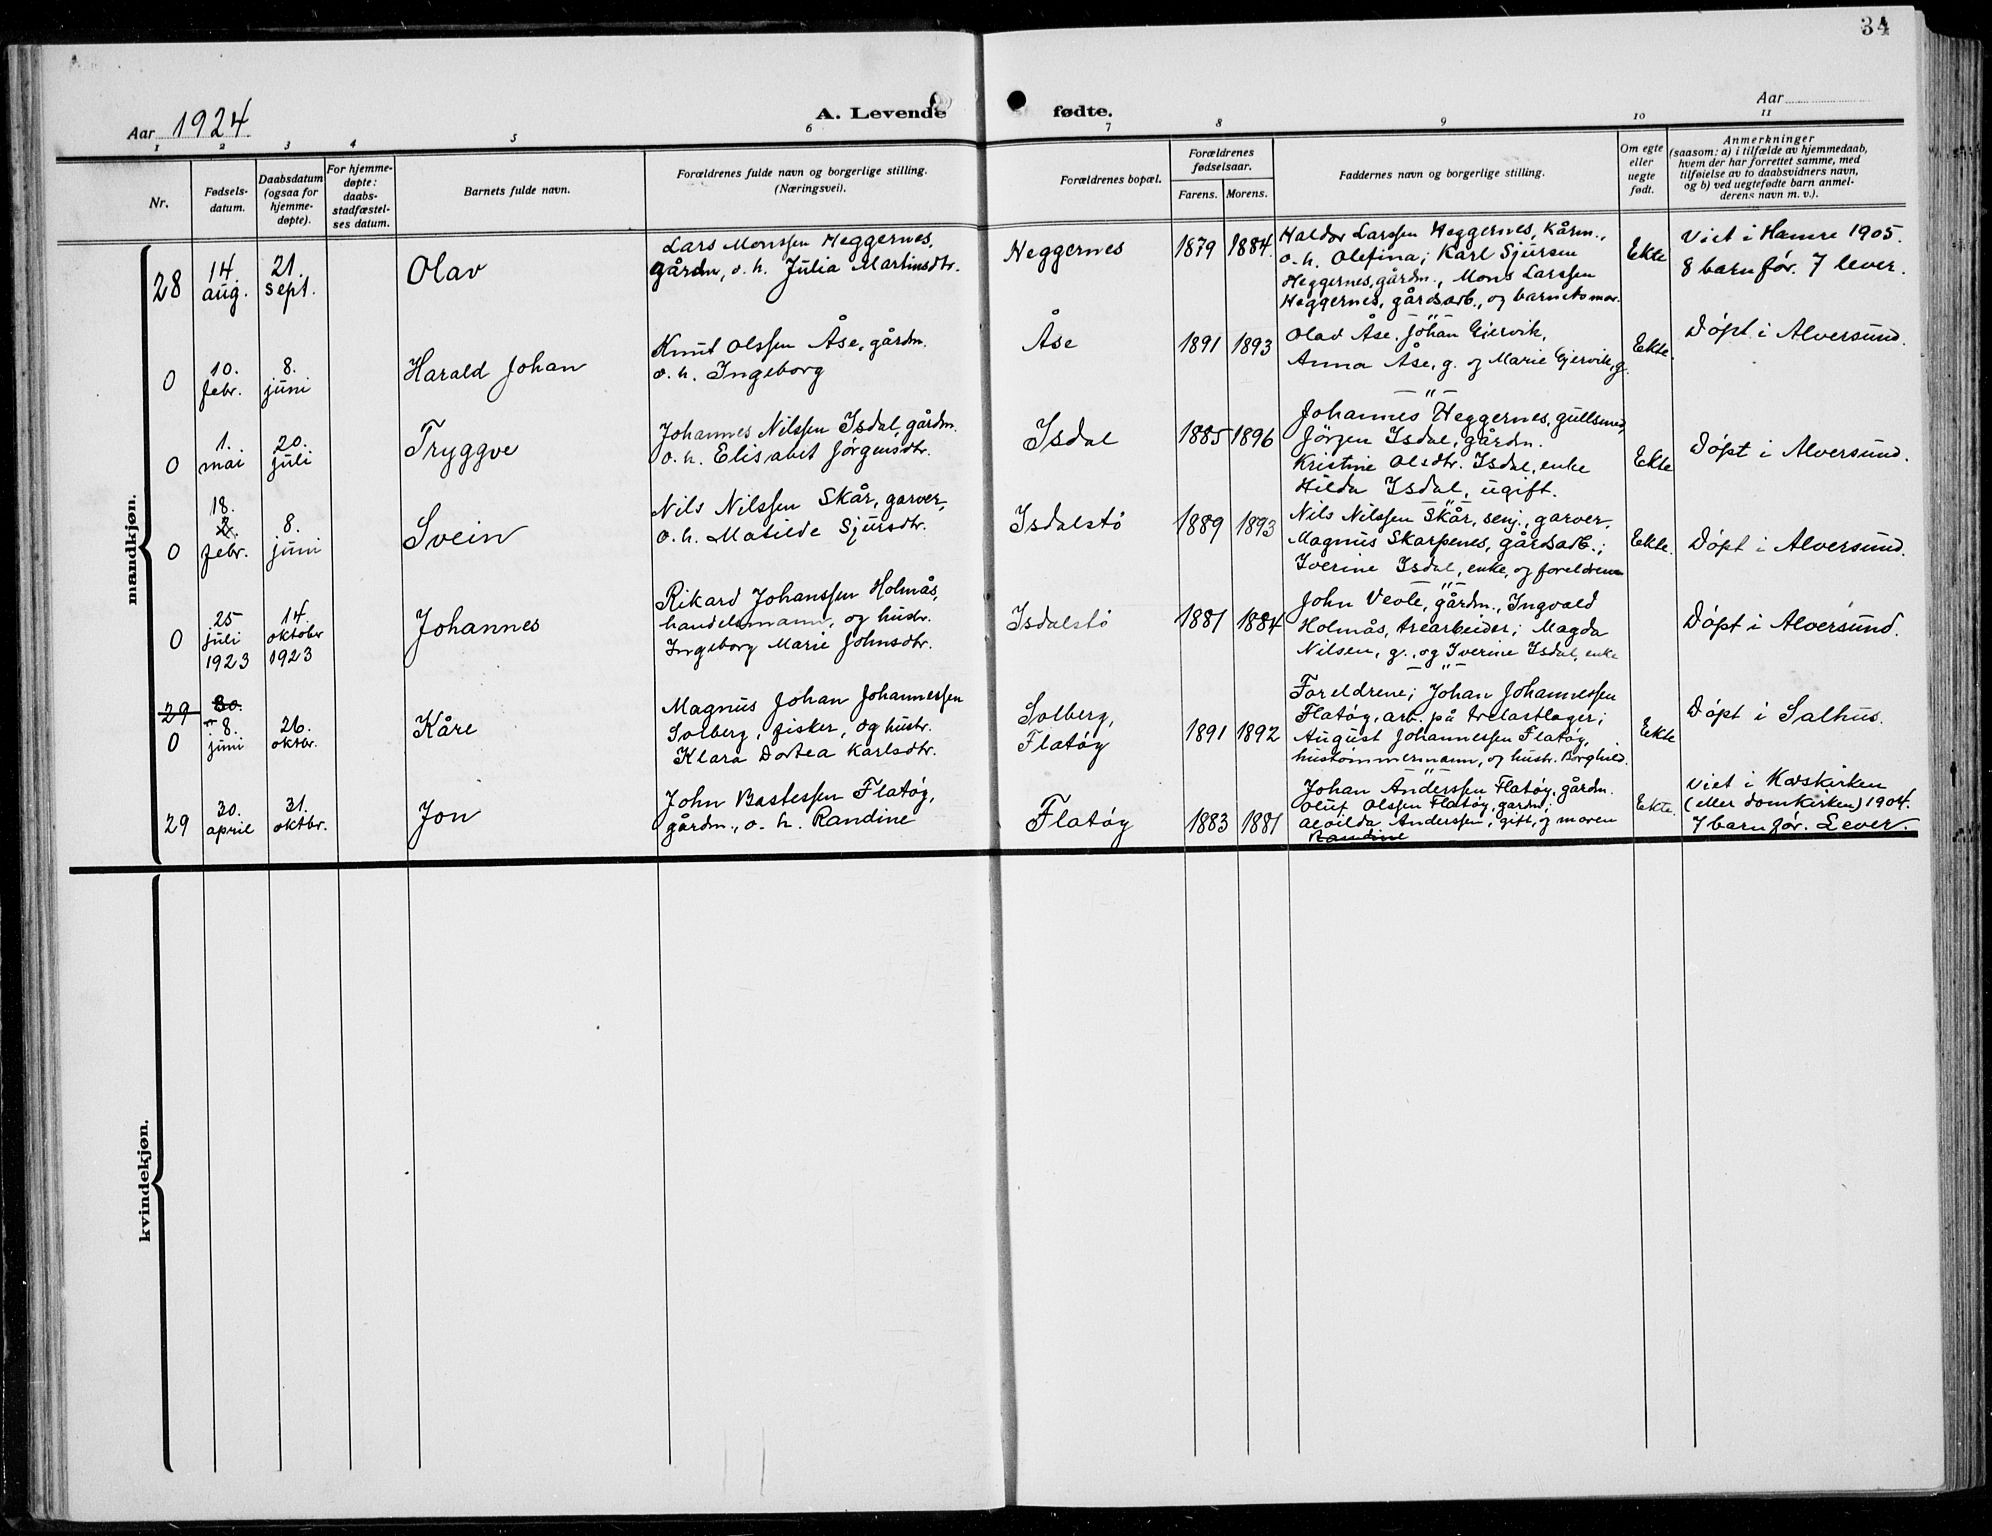 34
Aar 1924.
A. Levende fødte.
Aar
1 2 3 4 5 6 7 8 9 10 11
Nr.
Fødsels-
datum.
Daabsdatum
(ogsaa for
hjemme-
døpte).
For hjemme-
døpte:
daabs-
stadfæstel-
ses datum.
Barnets fulde navn.
Forældrenes fulde navn og borgerlige stilling.
(Næringsvei).
Forældrenes bopæl.
Forældrenes
fødselsaar.
Farens. Morens.
Faddernes navn og borgerlige stilling.
Om egte
eller
uegte
født.
Anmerkninger
(saasom: a) i tilfælde av hjemmedaab,
hvem der har forrettet samme, med
tilføielse av to daabsvidners navn,
og b) ved uegtefødte barn anmel-
derens navn m. v.).
mandkjøn.
28
14.
aug.
21.
sept.
Olav
Lars Monssen Heggernes,
gårdn, o. h. Julia Martinsdtr.
Heggernes
1879 1884.
Haldor Larssen Heggernes, Kårm.,
o. h. Olefina; Karl Sjursen
Heggernes, gårdm., Mons Larssen
Heggernes, gårdsarb., og barnets mor.
Ekte
Viet i Hamre 1905.
8 barn før. 7 lever.
0
10.
febr.
8.
juni
Harald Johan
Knut Olssen Åse, gårdm.
o. h. Ingeborg
Åse
1891 1893
— " —
Olav Åse, Johan Gjervik,
Anna Åse, g. og Marie Gjervik, g.
Ekte.
Døpt i Alversund.
0
1.
mai
20.
juli
Tryggve
Johannes Nilssen Isdal, gårdm.
o. h. Elisabet Jørgensdtr.
Isdal
1885 1896
— " —
Johannes Heggernes, gullsmed,
Jörgen Isdal, gårdn.
Kristine Olsdtr. Isdal, enke
Hilda Isdal, ugift.
Ekte
Døpt i Alversund.
0
18.
2.
febr.
8.
juni
Svein
Nils Nilssen Skår, garver,
o. h. Matilde Sjursdtr.
Isdalstö
1889 1893
— " —
Nils Nilssen Skår, senj., garver,
Magnus Skarpenes, gårdsarb.;
Iverine Isdal, enke, og foreldrene
Ekte.
Døpt i Alversund.
0
25
juli
1923
14.
oktober
1923
Johannes
Rikard Johanssen Holmås,
handelsmann, og hustr.
Ingeborg Marie Johnsdtr.
Isdalstö
1881 1884
— " —
John Veole, gårdm., Ingvald
Holmås, trearbeider; Magda
Nilsen, g., og Iverine Isdal, enke
Døpt i Alversund.
29
0
30.
8.
juni
26.
oktbr.
Kåre
Magnus Johan Johannessen
Solberg, fisker, og hustr.
Klara Dortea Karlsdtr.
Solberg,
Flatøy
1891 1892
— " —
Foreldrene; Johan Johannessen
Flatøy, arb. på trelastlager;
August Johannessen Flatøy,
hustømmermann, og hustr. Borghild.
Ekte
Døpt i Salhus.
29
30.
april
31.
oktbr.
Jon
John Bastessen Flatøy,
gårdm., o. h. Randine
Flatøy
1883 1881
— " —
Johan Anderssen Flatøy, gårdm.
Oluf Olssen Flatøy, gardm;
Alvilda Anderssen, gift, og moren
Randine
Ekte.
Viet i Korskirken
(eller domkirken) 1904.
7 barn før. Lever.
kvindekjøn.